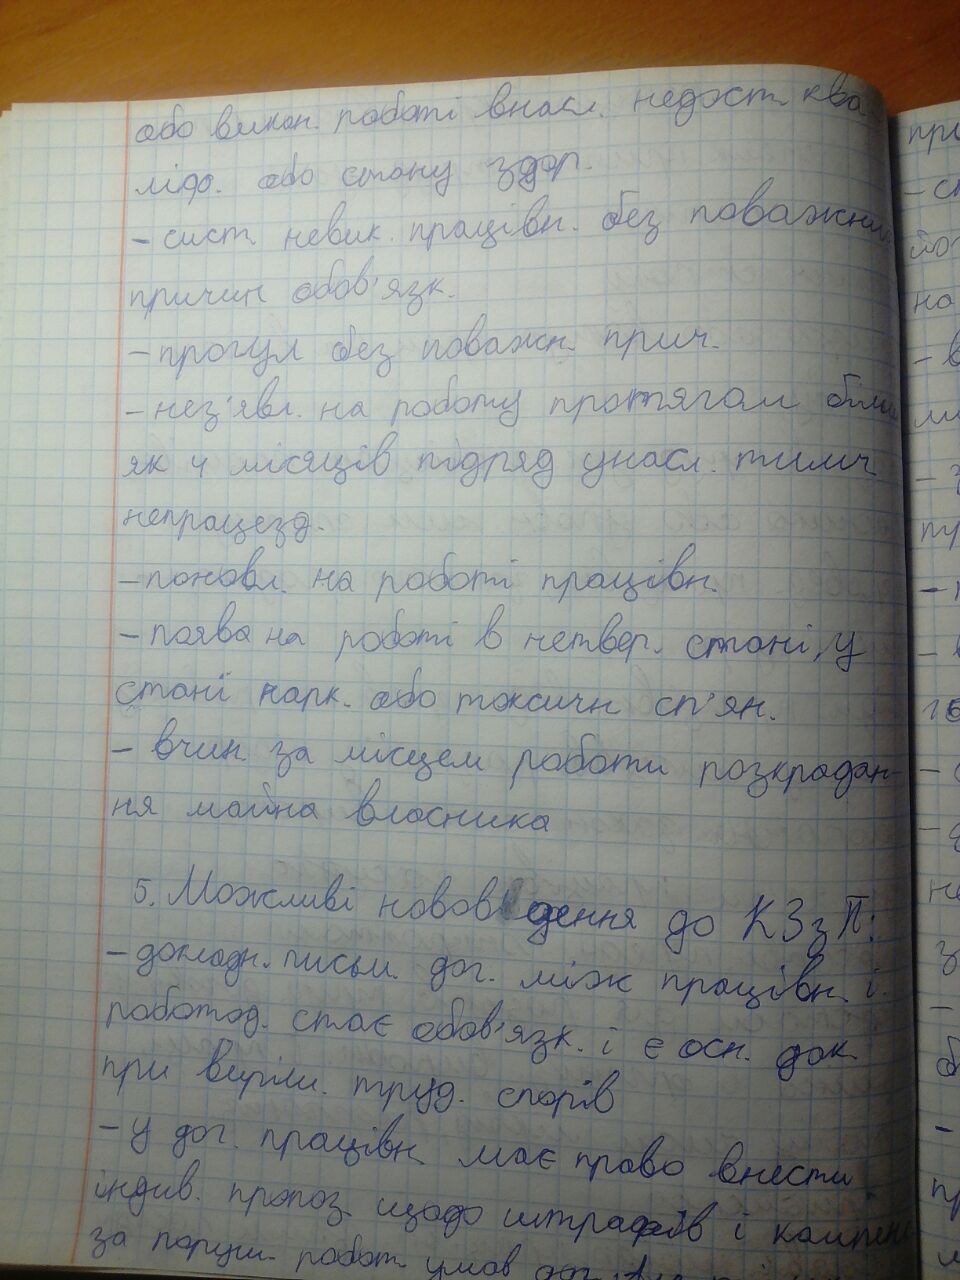 або викон. роботі внасл. недост. ква
ліф. або стану здор.
- сист. невик. працівн. без поважних
причин обов'язк.
- прогул без поважн. прич.
- нез'явл. на роботу протягом більш
як 4 місяців підряд унасл. тимч.
непрацезд.
- поновл. на роботі працівн.
- поява на роботі в нетвер. стані, у
стані нарк. або токсичн. сп'ян.
- вчин. за місцем роботи розкрадан-
ня майна власника
5. Можливі нововведення до КЗзП:
- докладн. письм. дог. між працівн. і
роботод. стає обов'язк. і є осн. док.
при виріш. труд. спорів
- у дог. працівн. має право внести
індив. пропоз. щодо штрафів і компенс
за поруш. робот. умов дог.